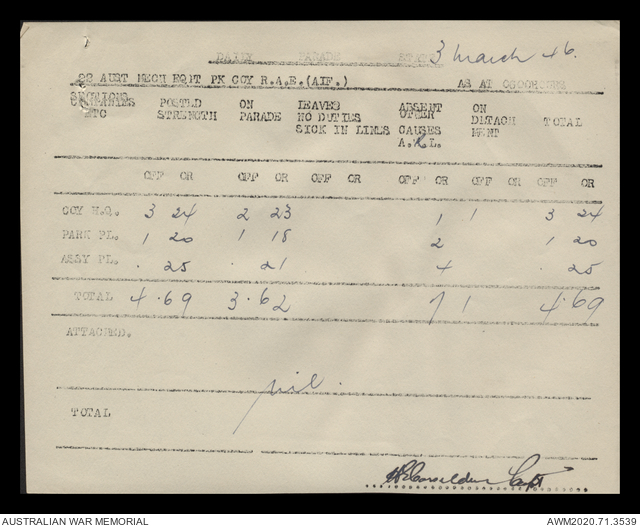 DAILY PARADE STATE 3 March 46.
22 AUST MECH EQPT PK COY R.A.E.(AIF.) AS AT 0600HOURS
SECTIONS
COMPANIES POSTED ON LEAVES ABSENT ON
ETC STRENGTH PARADE NO DUTIES OTHER DETACH TOTAL
SICK IN LINES CAUSES MENT
A.R.L.
OFF OR OFF OR OFF OR OFF OR OFF OR OFF OR
COY H.Q. 3 24 2 23 1 1 3 24
PARK PL. 1 20 1 18 2 1 20
ASSY PL. . 25 . 21 4 . 25
TOTAL 4.69 3.62 7 1 4.69
ATTACHED.
nil.
TOTAL
Capt
AUSTRALIAN WAR MEMORIAL AWM2020.71.3539